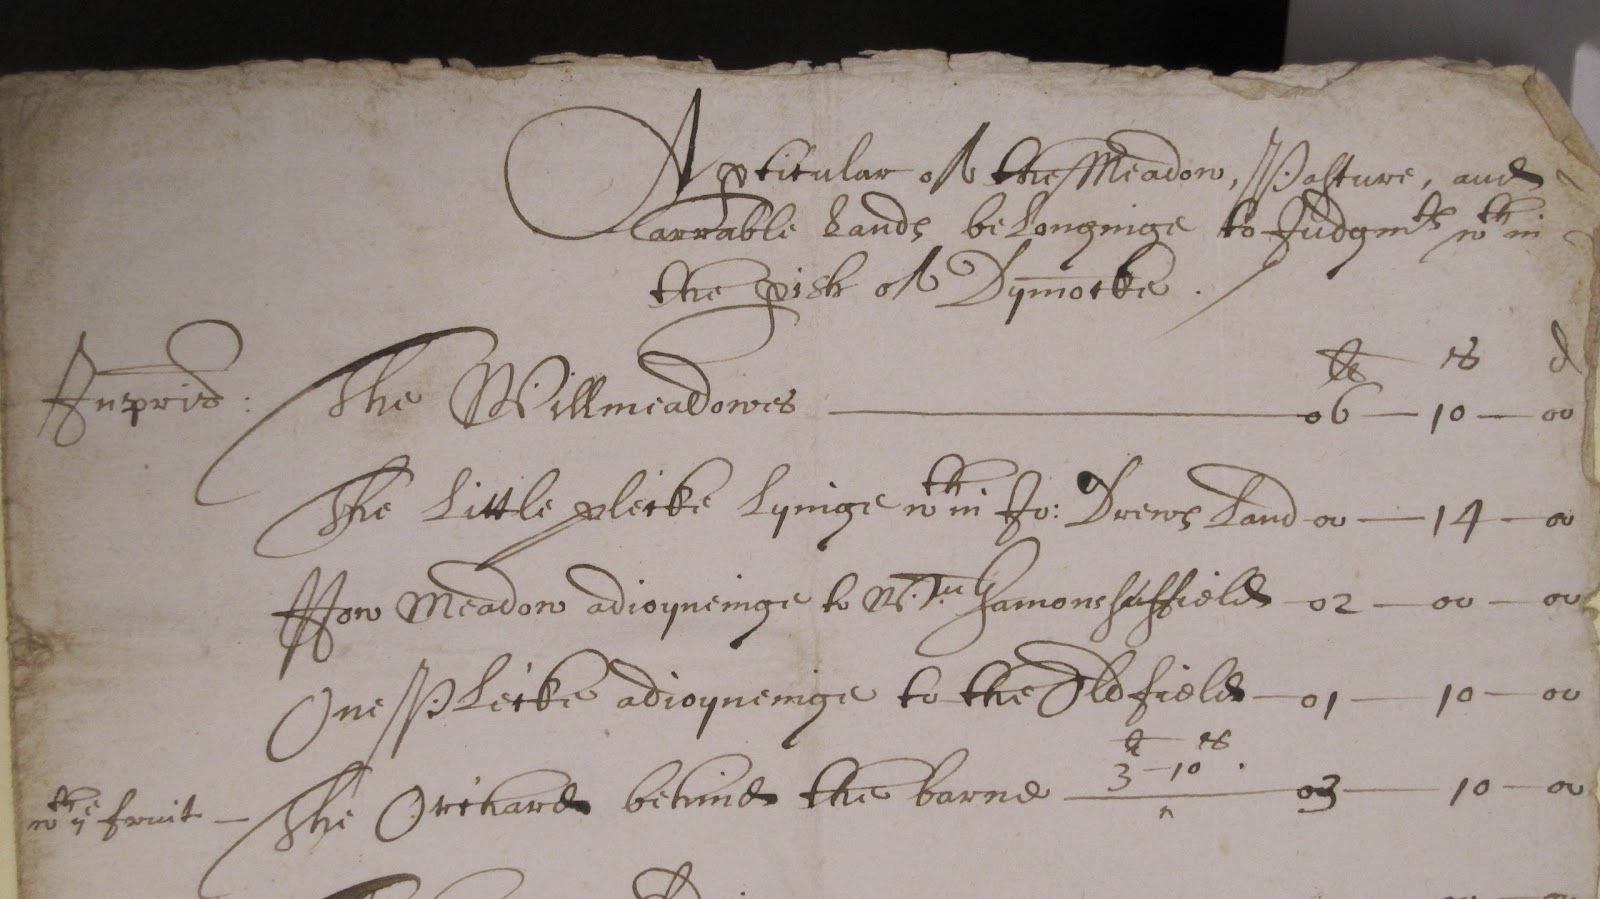 A pticular of the Meadow, Pasture, and
arrable Lands belonginge to Judgmts wth in
the pish of Dymocke.
li s d
Inpris: The Willmeadowes — 06 — 10 — 00
The Little plecke Lyinge wth in Jo: Drews Land 00 — 14 — 00
How Meadow adioyneinge to Wm Hamons — 02 — 00 — 00
One Plecke adioyneinge to the Oldfield — 01 — 10 — 00
li s
3 — 10
wth ye fruit — The Orchard behind the barne — 03 — 10 — 00
The